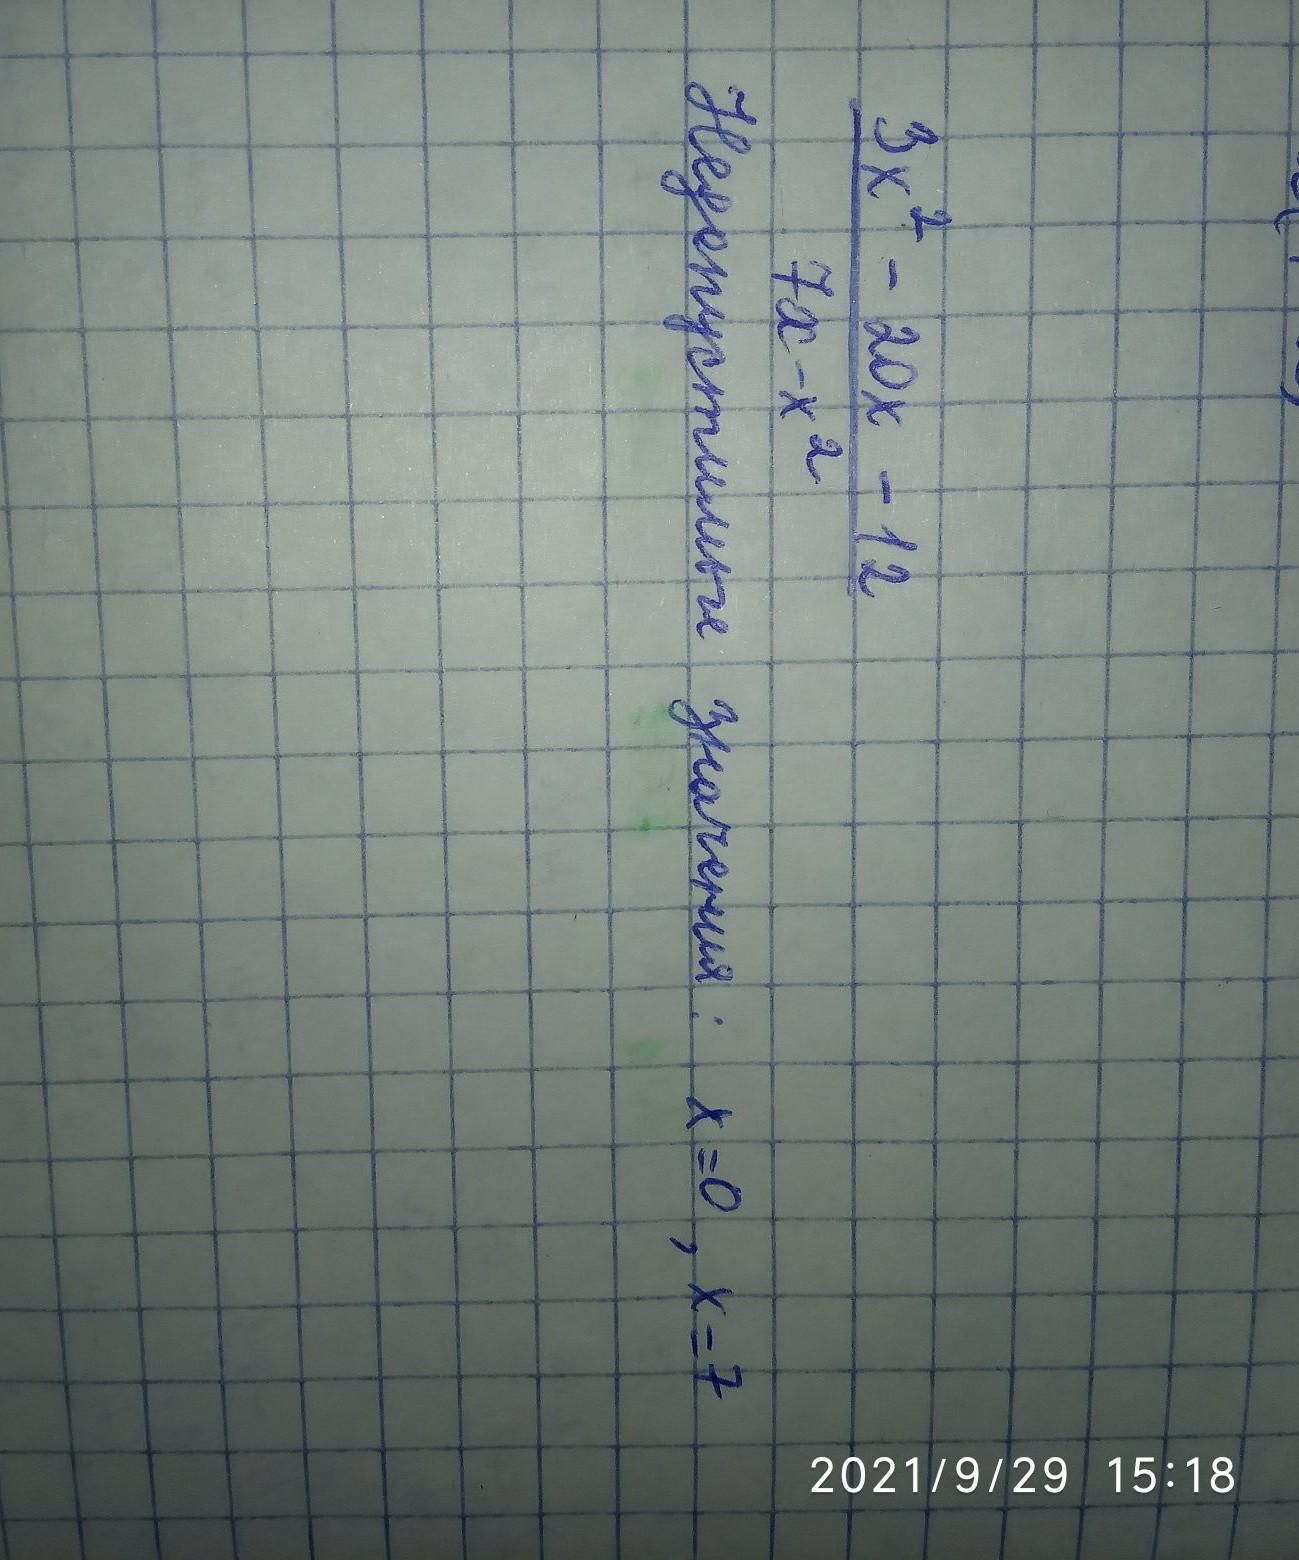 3x² - 20x - 12
7x - x²
Недопустимые значения: x=0, x=7
2021/9/29 15:18